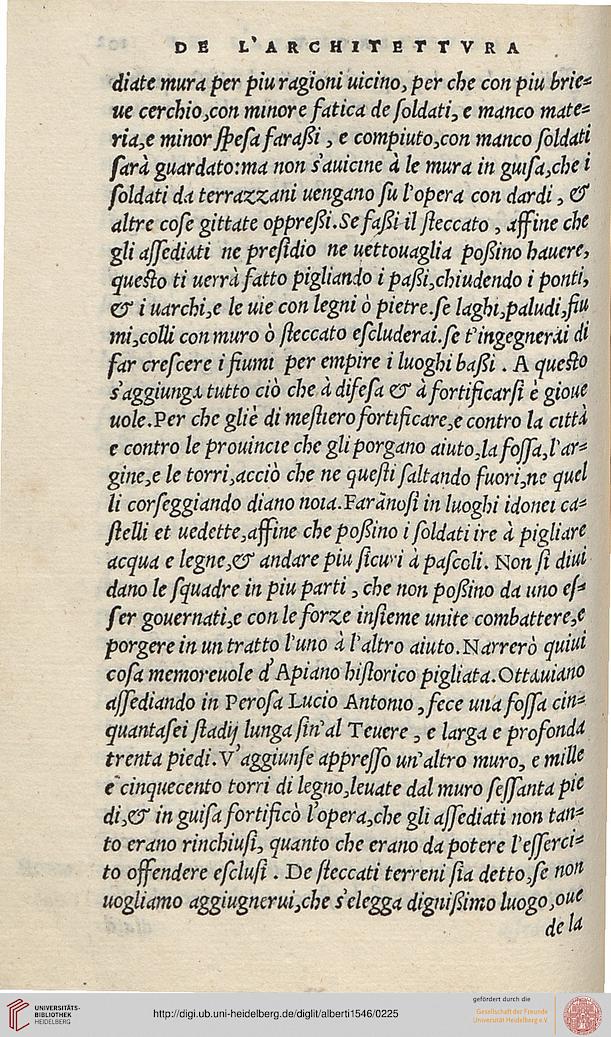 DE L'ARCHITETTVRA
diate mura per piu ragioni uicino, per che con piu brie=
ue cerchio,con minore fatica de ſoldati, e manco mate=
ria,e minor ſpeſa faraßi , e compiuto,con manco ſoldati
ſarà guardato:ma non s'auicine à le mura in guiſa,che i
ſoldati da terrazzani uengano ſu l'opera con dardi , &
altre coſe gittate oppreßi.Se faßi il ſteccato , affine che
gli aſſediati ne preſidio ne uettouaglia poßino hauere,
queſto ti uerrà fatto pigliando i paßi,chiudendo i ponti,
& i uarchi,e le uie con legni ò pietre.ſe laghi,paludi,fiu
mi,colli con muro ò ſteccato eſcluderai.ſe t'ingegnerai di
far creſcere i fiumi per empire i luoghi baßi . A queſto
s'aggiunga tutto ciò che à difeſa & à fortificarſi è gioue
uole.Per che gliè di meſtiero fortificare,e contro la città
e contro le prouincie che gli porgano aiuto,la foſſa,l'ar=
gine,e le torri,acciò che ne queſti ſaltando fuori,ne quel
li corſeggiando diano noia.Farānoſi in luoghi idonei ca=
ſtelli et uedette,affine che poßino i ſoldati ire à pigliare
acqua e legne,& andare piu ſicuri à paſcoli. Non ſi diui
dano le ſquadre in piu parti , che non poßino da uno eſ=
ſer gouernati,e con le forze inſieme unite combattere,e
porgere in un tratto l'uno à l'altro aiuto.Narrerò quiui
coſa memoreuole d'Apiano hiſtorico pigliata.Ottauiano
aſſediando in Peroſa Lucio Antonio , fece una foſſa cin=
quantaſei ſtadij lunga ſin'al Teuere , e larga e profonda
trenta piedi.V'aggiunſe appreſſo un'altro muro, e mille
e cinquecento torri di legno,leuate dal muro ſeſſanta pie
di,& in guiſa fortificò l'opera,che gli aſſediati non tan=
to erano rinchiuſi, quanto che erano da potere l'eſſerci=
to offendere eſcluſi . De ſteccati terreni ſia detto,ſe non
uogliamo aggiugnerui,che s'elegga dignißimo luogo,oue
de la
UNIVERSITÄTS-
BIBLIOTHEK
HEIDELBERG
http://digi.ub.uni-heidelberg.de/diglit/alberti1546/0225
gefördert durch die
Gesellschaft der Freunde
Universität Heidelberg e.V.